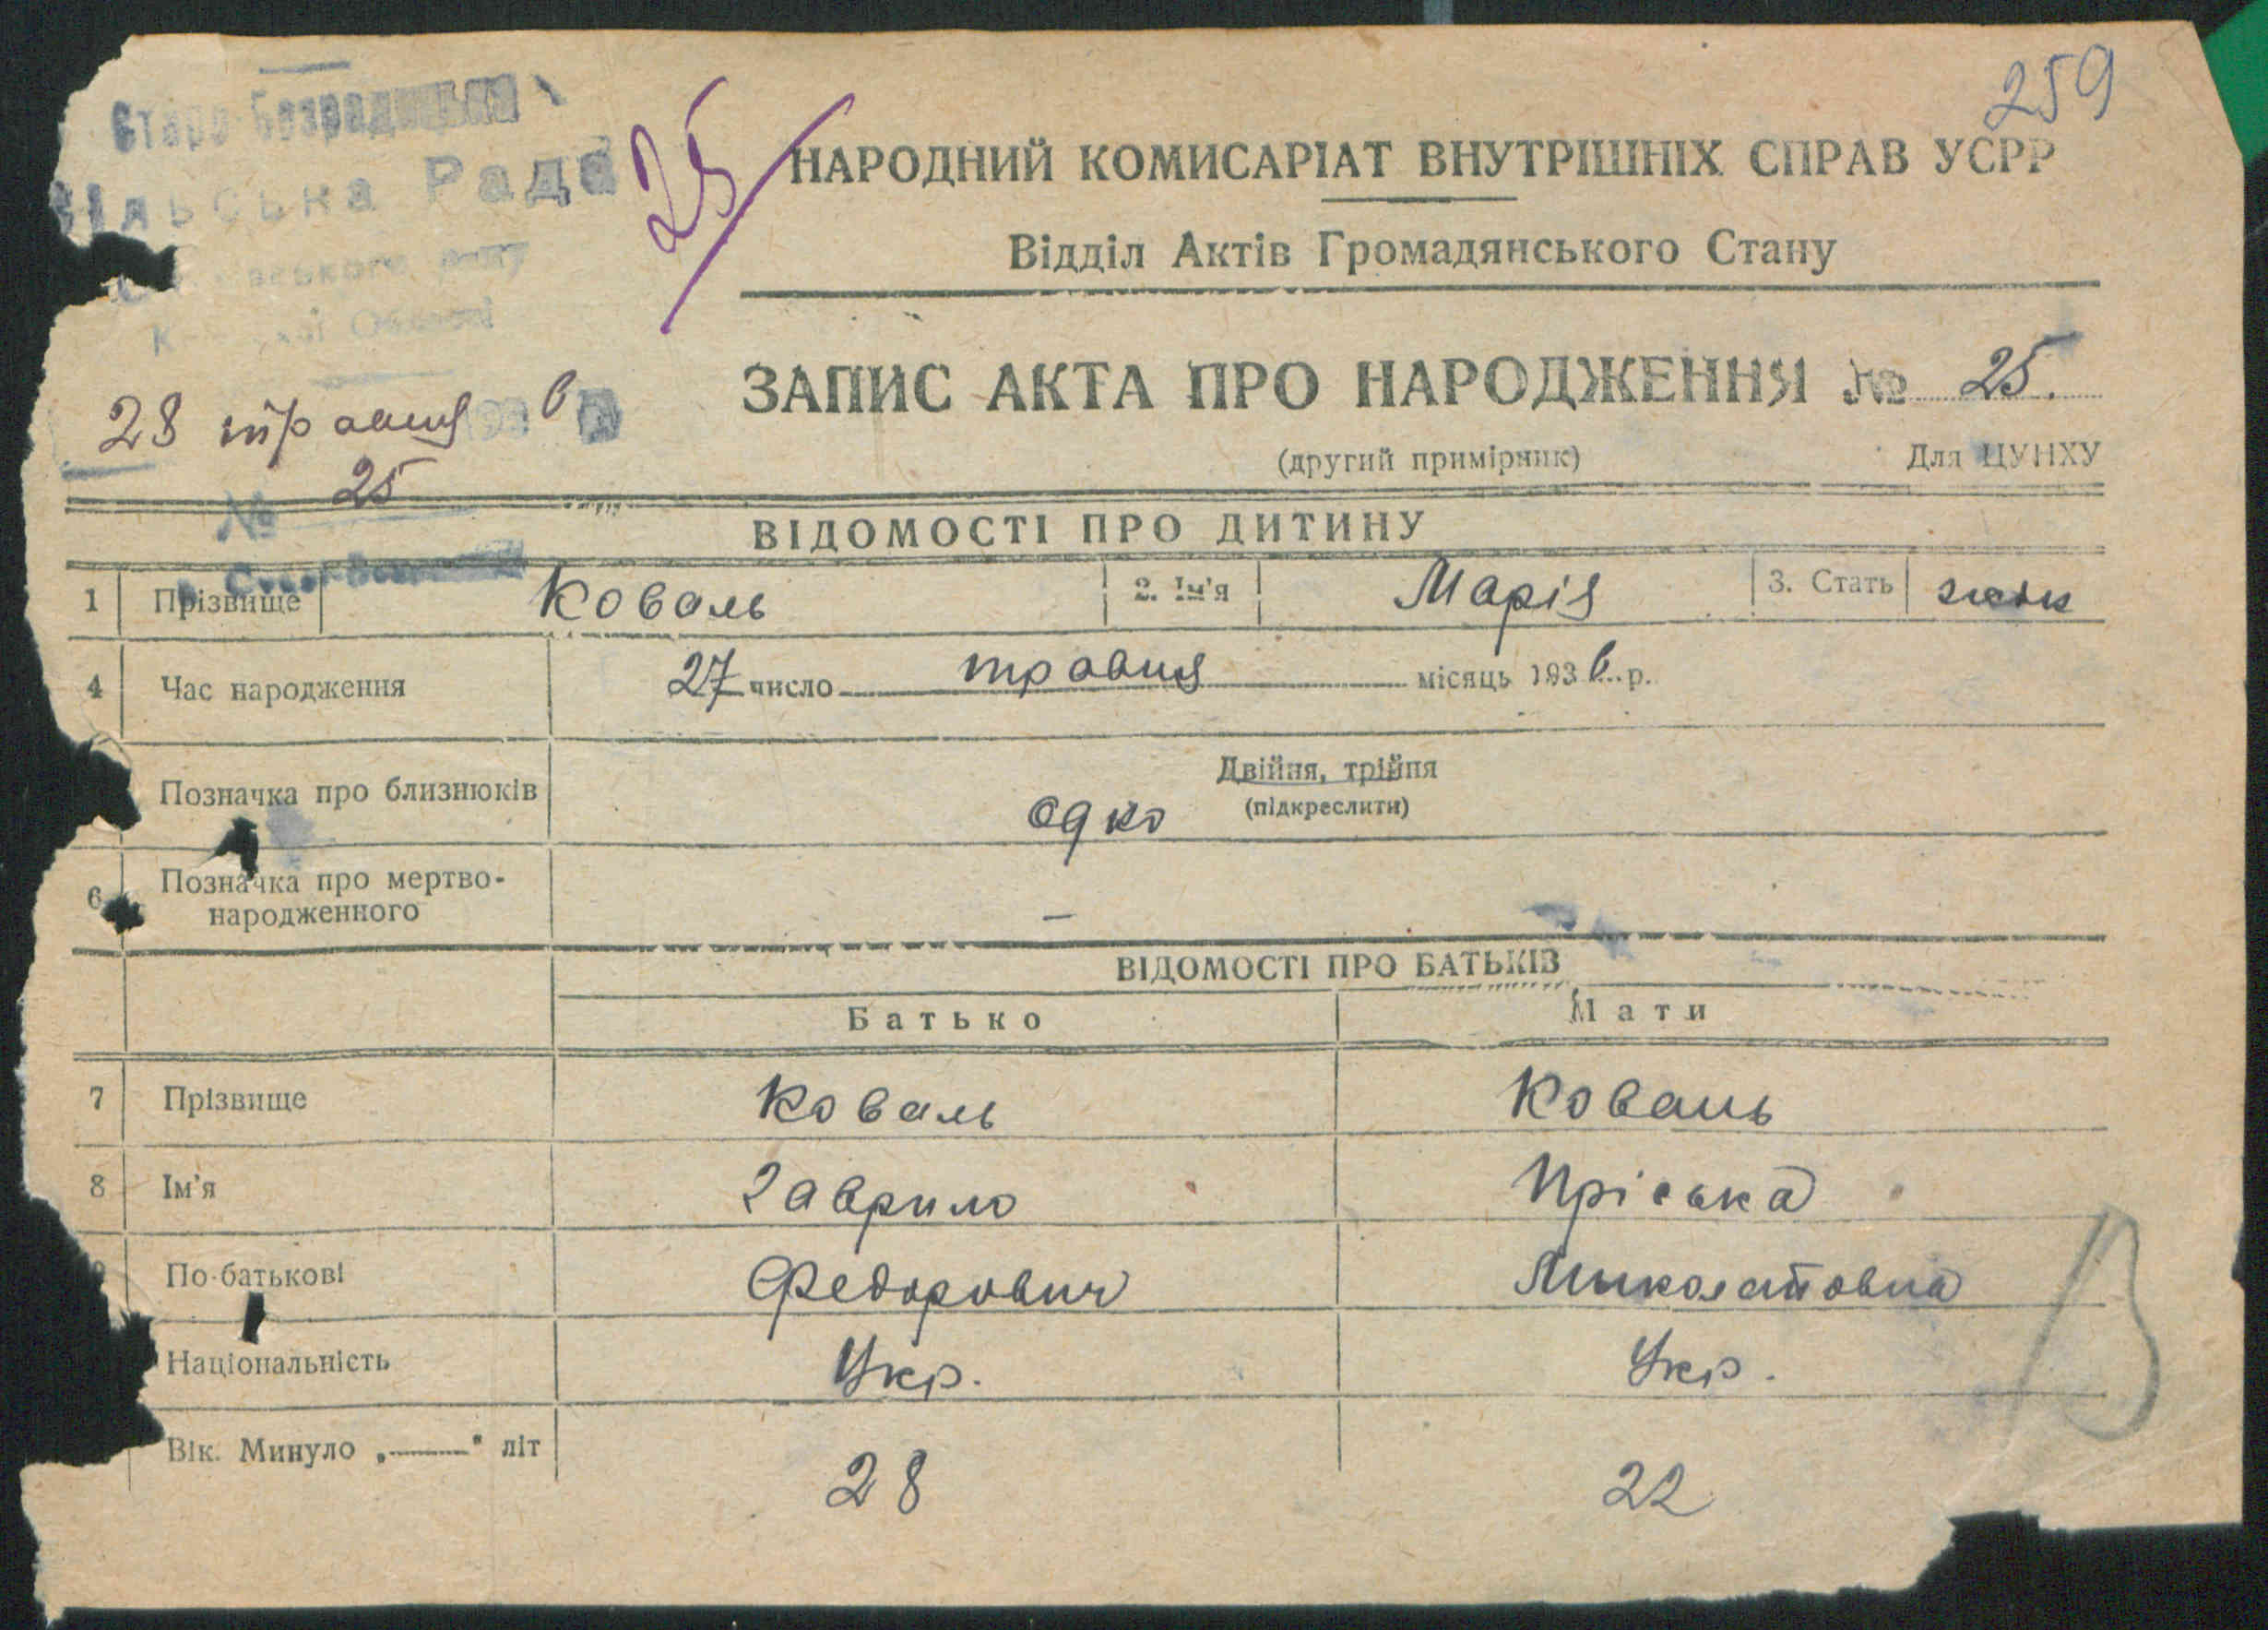 259
Старо-Безрадицька
Сільська Рада
25
НАРОДНИЙ КОМИСАРІАТ ВНУТРІШНІХ СПРАВ УСРР
Відділ Актів Громадянського Стану
Області
28 травня 1936
№ 25
ЗАПИС АКТА ПРО НАРОДЖЕННЯ № 25.
(другий примірник) Для ЦУНХУ
ВІДОМОСТІ ПРО ДИТИНУ
1 Прізвище Коваль 2. Ім'я Марія 3. Стать жін
4 Час народження 27 число травня місяць 1936 р.
Позначка про близнюків Двійня, трійня
одно (підкреслити)
6 Позначка про мертво-
народженного —
ВІДОМОСТІ ПРО БАТЬКІВ
Батько Мати
7 Прізвище Коваль Коваль
8 Ім'я Гаврило Пріська
9 По-батькові Федорович Миколаївна
Національність Укр. Укр.
Вік. Минуло „——" літ 28 22